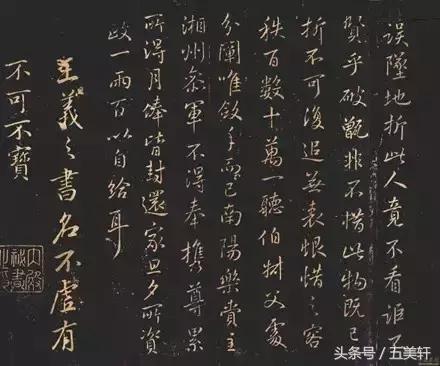 誤墜地折此人竟不看詎不
賢乎破甑非不惜此物既已
折不可復追無哀恨惜之容
秩百數十萬一聽伯樹父處
分唯斂手而已南陽樂賞主
湘州參軍不得奉攜尊累
所得月俸皆封還家旦夕所資
政一兩百以自給耳
王羲之書名不虛有
不可不寶
头条号 / 五美轩